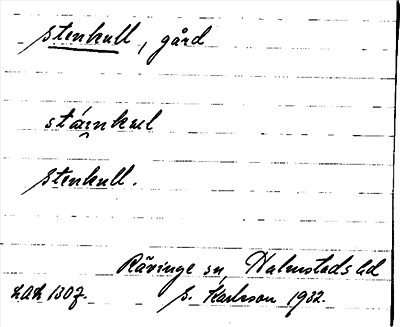 Stenkull, gård
stáinkul
Stenkull.
Rävinge sn, Halmstads hd
LAL 1307. S. Karlsson 1932.